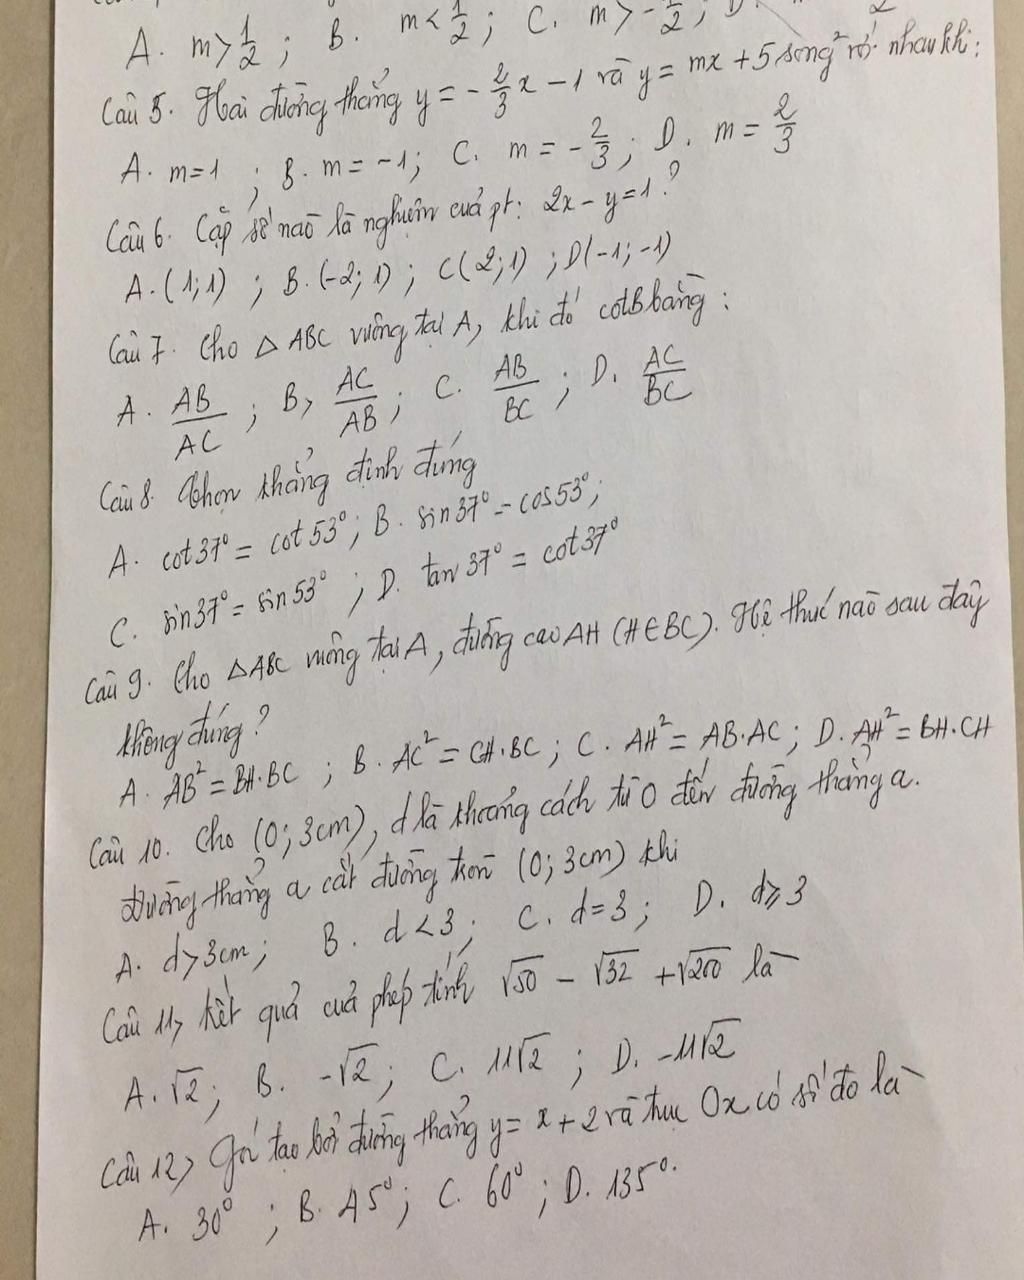 A. m > 1/2 ; B. m < 1/2 ; C. m > -1/2 ; D.
Câu 5. Hai đường thẳng y = -2/3x - 1 và y = mx + 5 song² với nhau khi:
A. m = 1 ; B. m = -1; C. m = -2/3; D. m = 2/3
Câu 6. Cặp số nào là nghiệm của pt: 2x - y = 1?
A. (1; 1) ; B. (-2; 1) ; C(2; 1) ; D(-1; -1)
Câu 7. Cho △ ABC vuông tại A, khi đó cotB bằng:
A. AB/AC ; B> AC/AB ; C. AB/BC ; D. AC/BC
Câu 8. Chọn khẳng định đúng
A. cot37° = cot53°; B. sin37° = cos53°;
C. sin37° = sin53° ; D. tan37° = cot37°
Câu 9. Cho △ABC vuông tại A, đường cao AH (H∈BC). Hệ thức nào sau đây
không đúng?
A. AB² = BH·BC ; B. AC² = CH·BC ; C. AH² = AB·AC ; D. AH² = BH·CH
Câu 10. Cho (O; 3cm), d là khoảng cách từ O đến đường thẳng a.
Đường thẳng a cắt đường tròn (O; 3cm) khi
A. d > 3cm; B. d < 3; C. d = 3; D. d ⩾ 3
Câu 11> Kết quả của phép tính √50 - √32 + √200 là
A. √2; B. -√2; C. 11√2 ; D. -11√2
Câu 12> Góc tạo bởi đường thẳng y = x + 2 và trục Ox có số đo là
A. 30° ; B. 45°; C. 60° ; D. 135°.